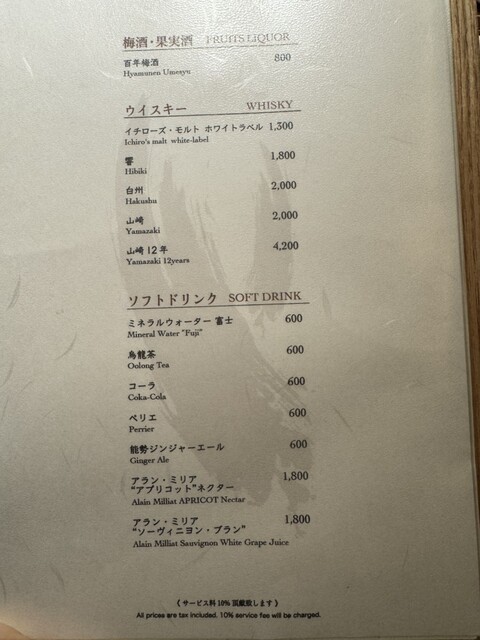 梅酒・果実酒 FRUITS LiQUOR
百年梅酒 800
Hyamunen Umesyu
ウイスキー WHISKY
イチローズ・モルト ホワイトラベル 1,300
Ichiro's malt white-label
響 1,800
Hibiki
白州 2,000
Hakushu
山崎 2,000
Yamazaki
山崎 12年 4,200
Yamazaki 12years
ソフトドリンク SOFT DRINK
ミネラルウォーター 富士 600
Mineral Water "Fuji"
烏龍茶 600
Oolong Tea
コーラ 600
Coka-Cola
ペリエ 600
Perrier
能勢ジンジャーエール 600
Ginger Ale
アラン・ミリア 1,800
"アプリコット"ネクター
Alain Milliat APRICOT Nectar
アラン・ミリア 1,800
"ソーヴィニヨン・ブラン"
Alain Milliat Sauvignon White Grape Juice
《 サービス料 10% 頂戴致します 》
All prices are tax included. 10% service fee will be charged.